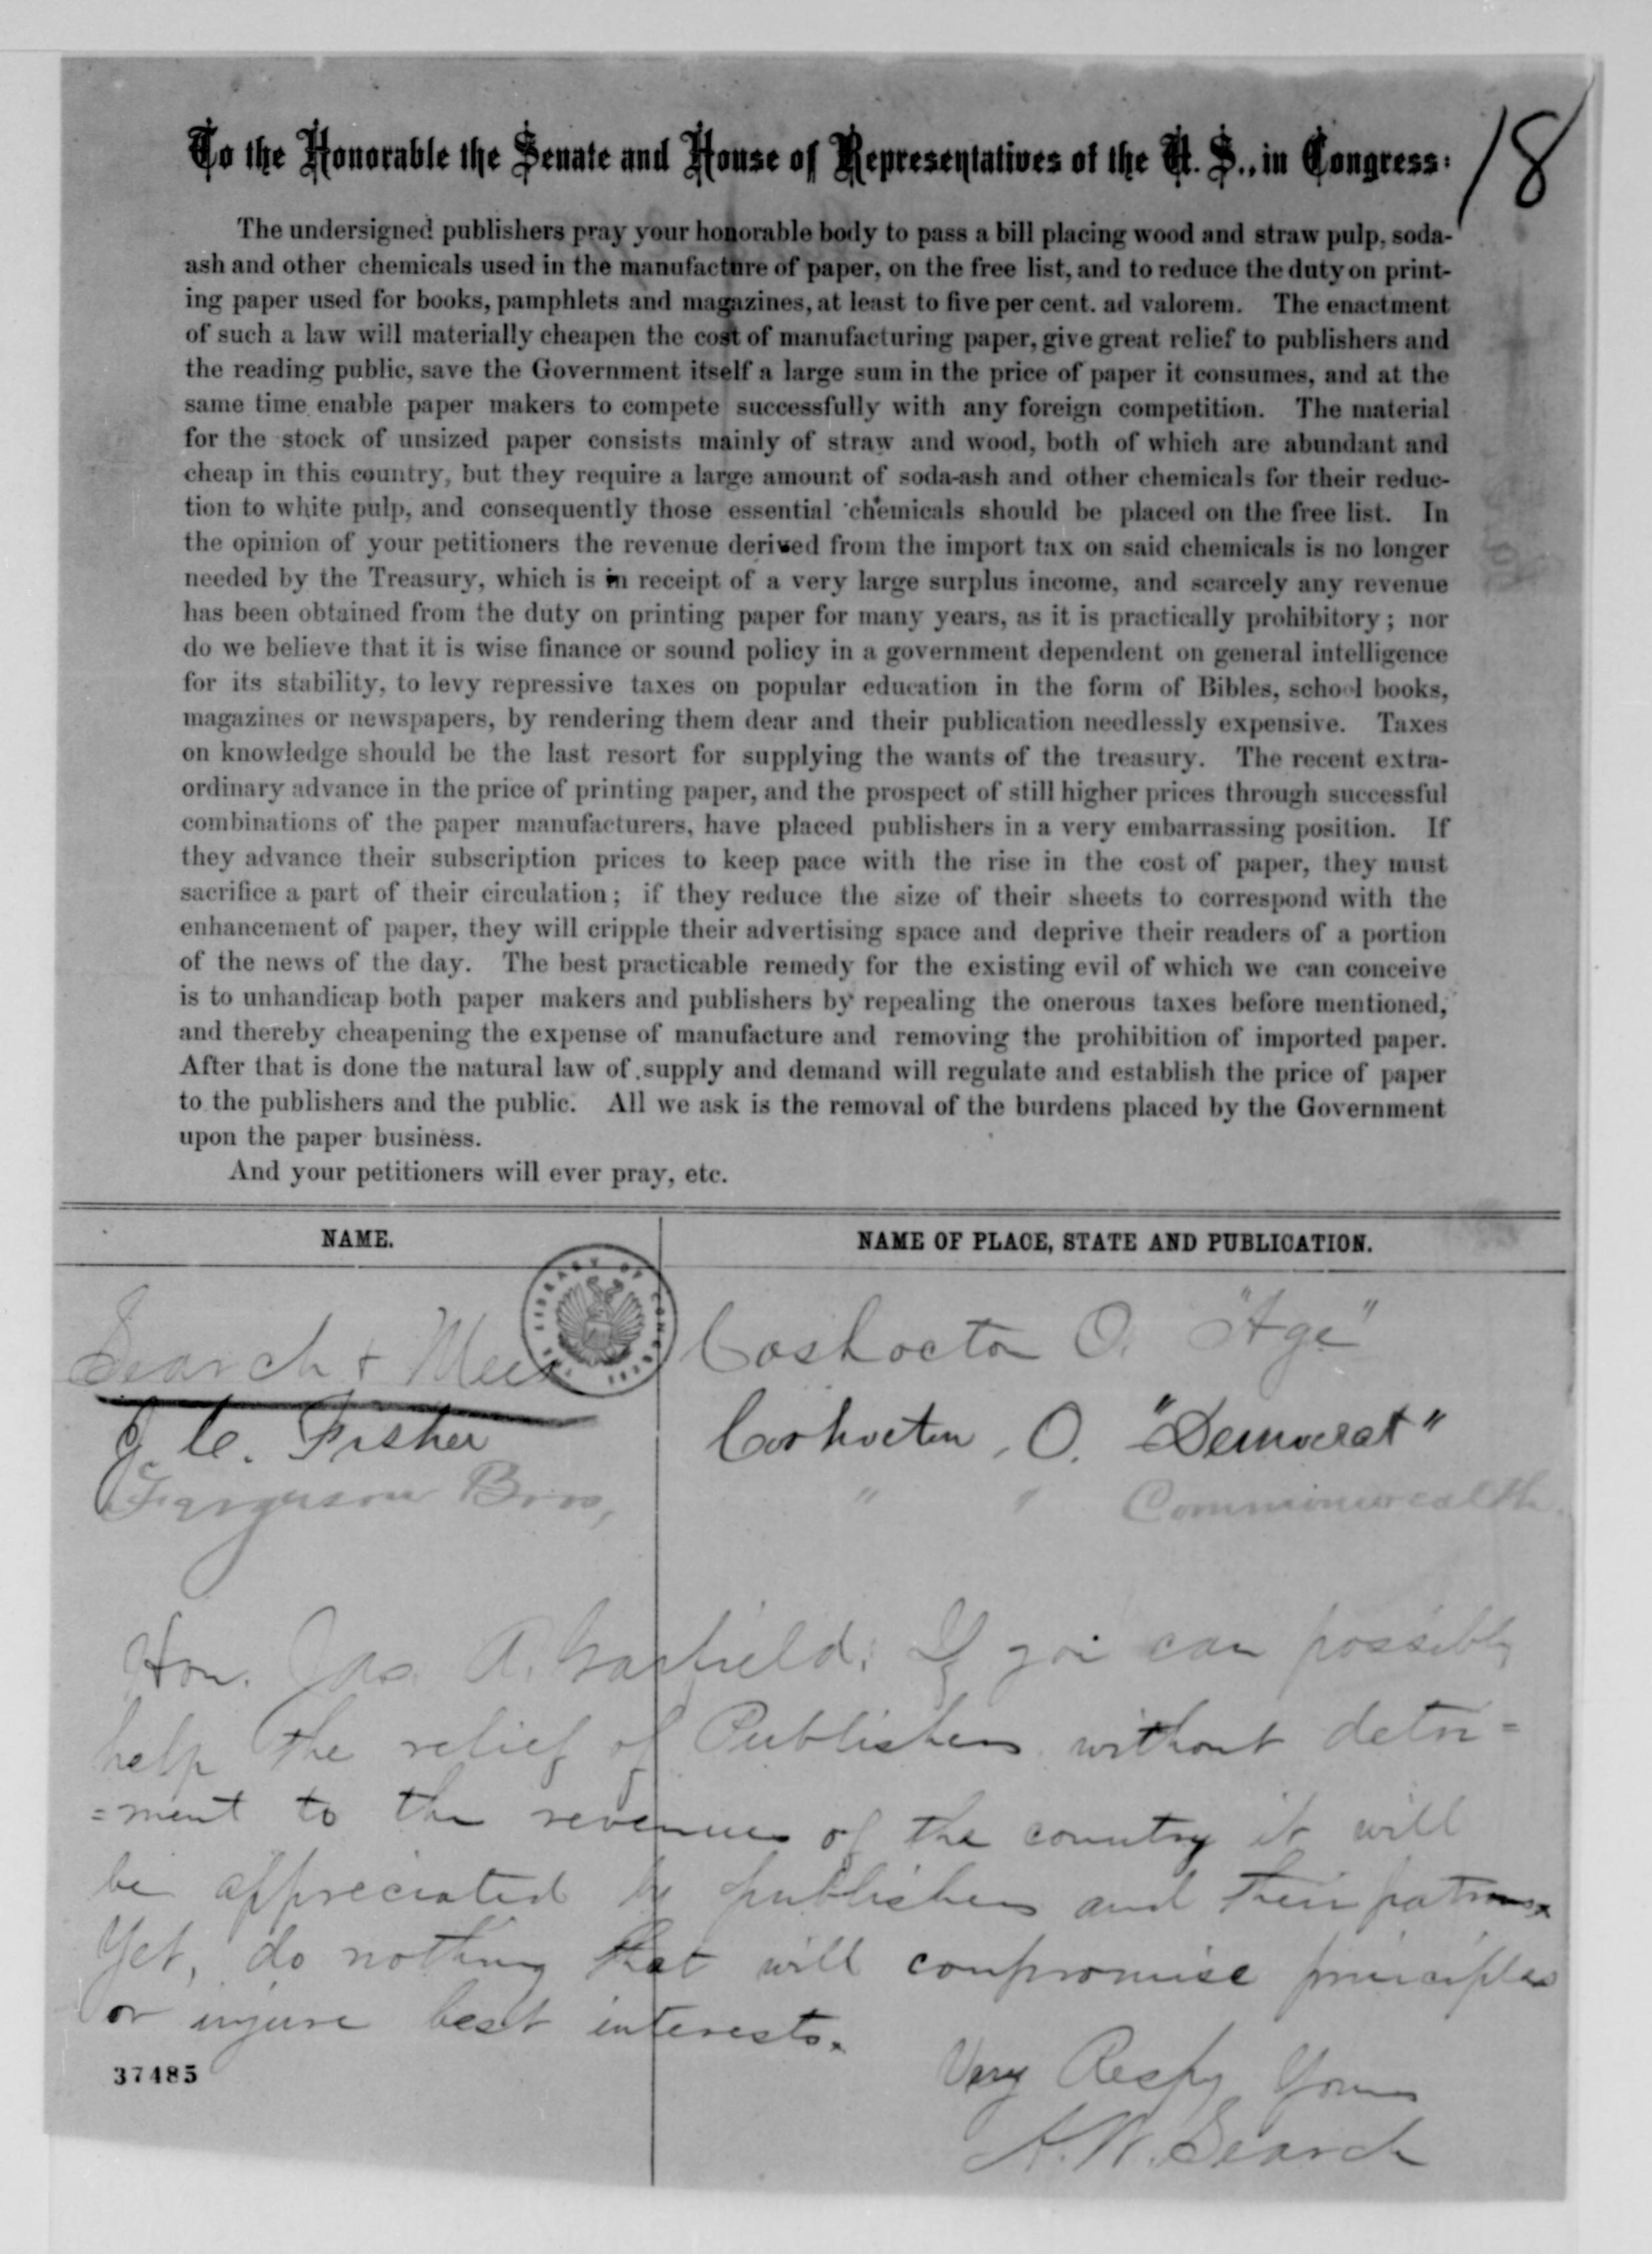 18
To the Honorable the Senate and House of Representatives of the U. S., in Congress:
The undersigned publishers pray your honorable body to pass a bill placing wood and straw pulp, soda-
ash and other chemicals used in the manufacture of paper, on the free list, and to reduce the duty on print-
ing paper used for books, pamphlets and magazines, at least to five per cent. ad valorem. The enactment
of such a law will materially cheapen the cost of manufacturing paper, give great relief to publishers and
the reading public, save the Government itself a large sum in the price of paper it consumes, and at the
same time enable paper makers to compete successfully with any foreign competition. The material
for the stock of unsized paper consists mainly of straw and wood, both of which are abundant and
cheap in this country, but they require a large amount of soda-ash and other chemicals for their reduc-
tion to white pulp, and consequently those essential chemicals should be placed on the free list. In
the opinion of your petitioners the revenue derived from the import tax on said chemicals is no longer
needed by the Treasury, which is in receipt of a very large surplus income, and scarcely any revenue
has been obtained from the duty on printing paper for many years, as it is practically prohibitory; nor
do we believe that it is wise finance or sound policy in a government dependent on general intelligence
for its stability, to levy repressive taxes on popular education in the form of Bibles, school books,
magazines or newspapers, by rendering them dear and their publication needlessly expensive. Taxes
on knowledge should be the last resort for supplying the wants of the treasury. The recent extra-
ordinary advance in the price of printing paper, and the prospect of still higher prices through successful
combinations of the paper manufacturers, have placed publishers in a very embarrassing position. If
they advance their subscription prices to keep pace with the rise in the cost of paper, they must
sacrifice a part of their circulation; if they reduce the size of their sheets to correspond with the
enhancement of paper, they will cripple their advertising space and deprive their readers of a portion
of the news of the day. The best practicable remedy for the existing evil of which we can conceive
is to unhandicap both paper makers and publishers by repealing the onerous taxes before mentioned,
and thereby cheapening the expense of manufacture and removing the prohibition of imported paper.
After that is done the natural law of supply and demand will regulate and establish the price of paper
to the publishers and the public. All we ask is the removal of the burdens placed by the Government
upon the paper business.
And your petitioners will ever pray, etc.
NAME. NAME OF PLACE, STATE AND PUBLICATION.
LIBRARY OF CONGRESS
Search + Coshocton O. "Age"
J. C. Fisher Coshocton, O. "Democrat"
Ferguson Bros, " " Commonwealth.
Hon. Jas. A. Garfield: If you can possibly
help the relief of Publishers without detri=
=ment to the revenues of the country it will
be appreciated by publishers and their patrons.
Yet, do nothing that will compromise principles
or injure best interests.
Very Respy Yours
A. W. Search
37485